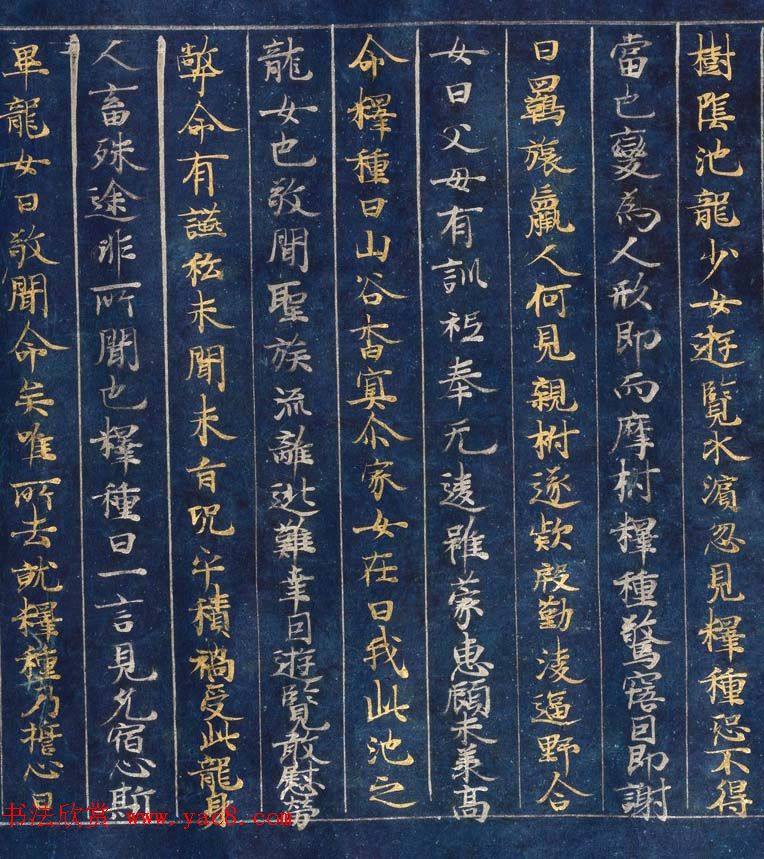 樹陰池龍少女遊覽水濱忽見釋種恐不得
當也變為人形即而摩拊釋種驚寤因即謝
曰羈旅羸人何見親拊遂欵殷勤淩逼野合
女曰父母有訓祗奉无違雖蒙惠顧未羕高
命釋種曰山谷杳冥尒家女在曰我此池之
龍女也敬聞聖族流離逃難幸因遊覽敢慰勞
弊命有讌私未聞来旨呪乎積禍受此龍身
人畜殊途非所聞也釋種曰一言見允宿心斯
畢龍女曰敬聞命矣唯所去就釋種乃擔心曰
书法欣赏 www.yac8.com